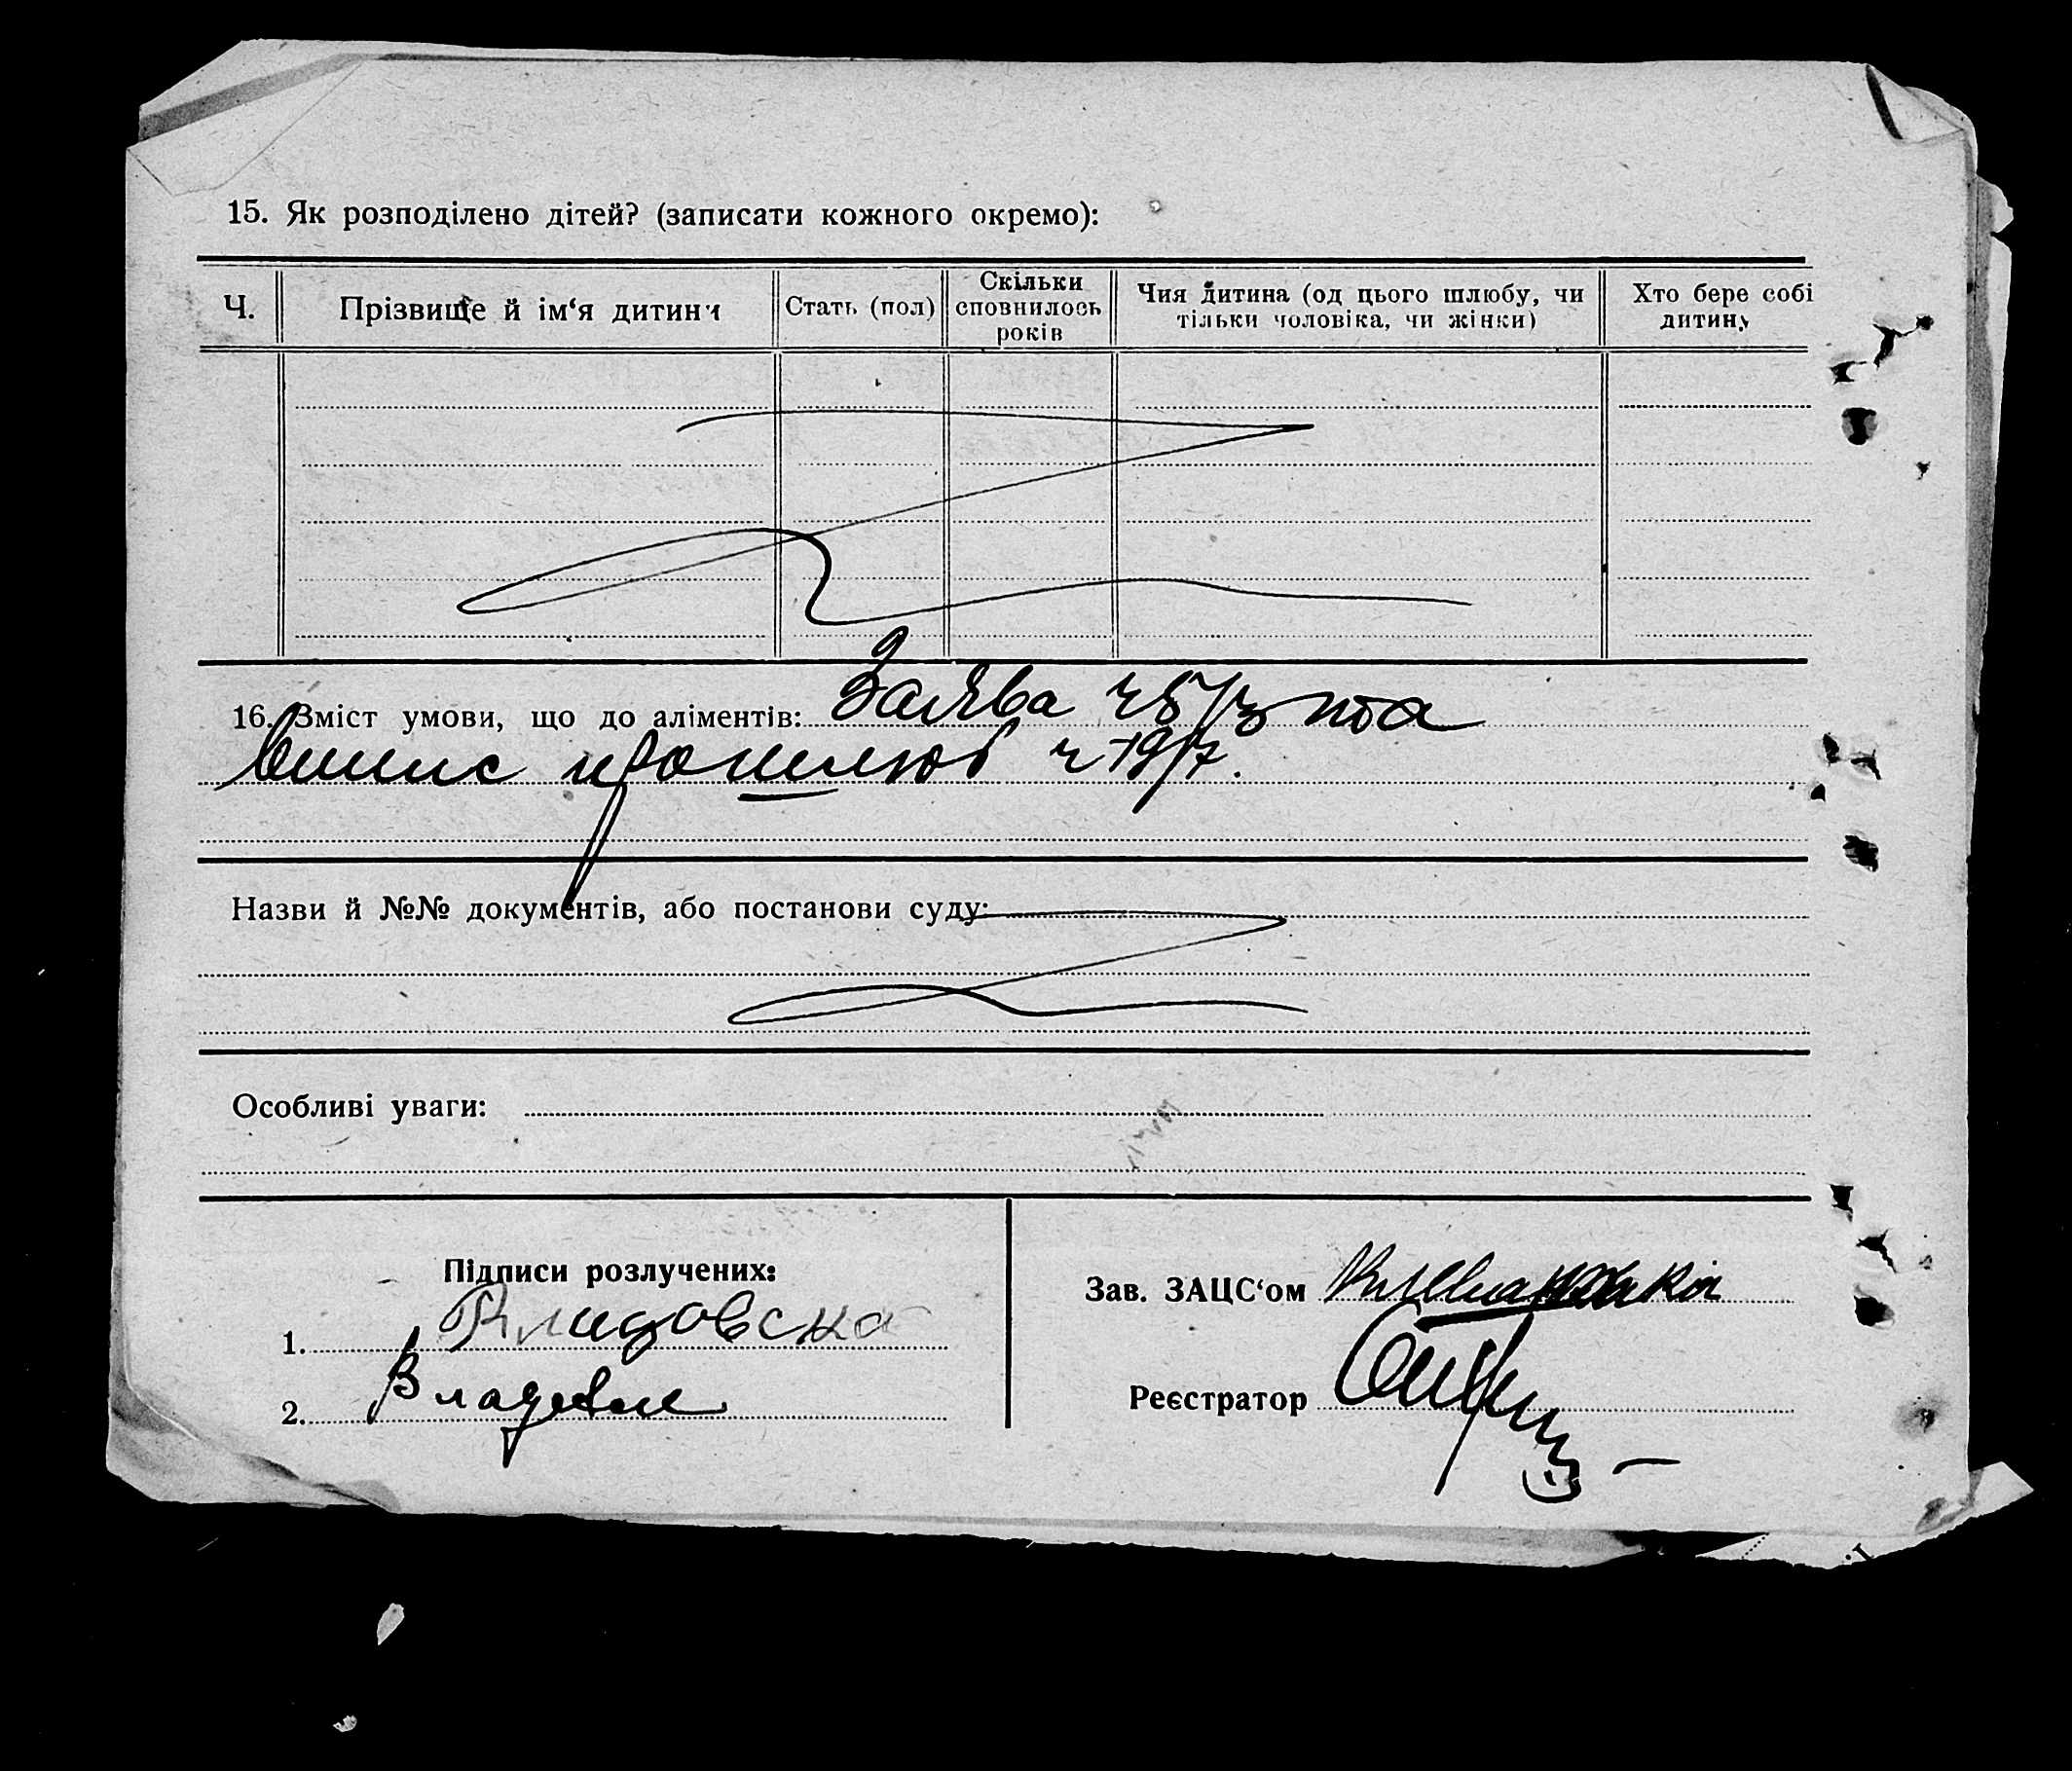 15. Як розподілено дітей? (записати кожного окремо):
Ч.
Прізвище й ім‘я дитини
Стать (пол)
Скільки
сповнилось
років
Чия дитина (од цього шлюбу, чи
тільки чоловіка, чи жінки)
Хто бере собі
дитину
16. Зміст умови, що до аліментів: Заява ч та
випис про шлюб ч
Назви й №№ документів, або постанови суду:
Особливі уваги:
Підписи розлучених:
1.
2.
Зав. ЗАЦС‘ом
Реєстратор